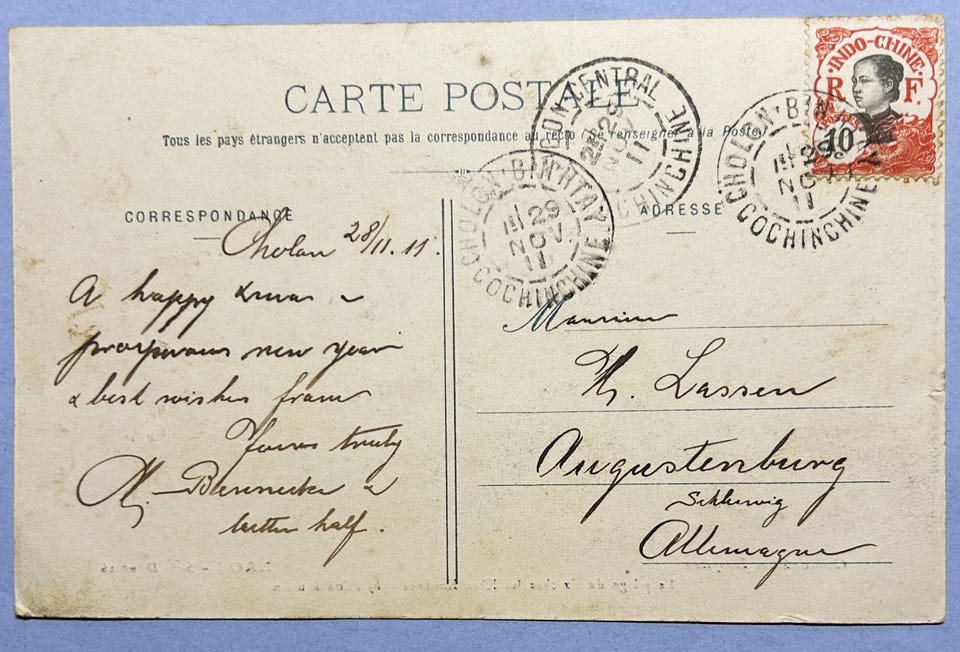 CARTE POSTALE
Tous les pays étrangers n'acceptent pas la correspondance au recto (Se renseigner à la Poste)
INDO-CHINE
R F
10
CHOLON-BINHTAY
29
NOV
11
COCHINCHINE
CENTRAL
29
NOV
11
COCHINCHINE
CHOLON-BINHTAY
29
NOV.
11
COCHINCHINE
CORRESPONDANCE
Cholon 28/11.11.
A happy Xmas &
prosperous new year
& best wishes from
Yours truly
&
better half.
ADRESSE
Monsieur
Th. Lassen
Augustenburg
Schleswig
Allemagne